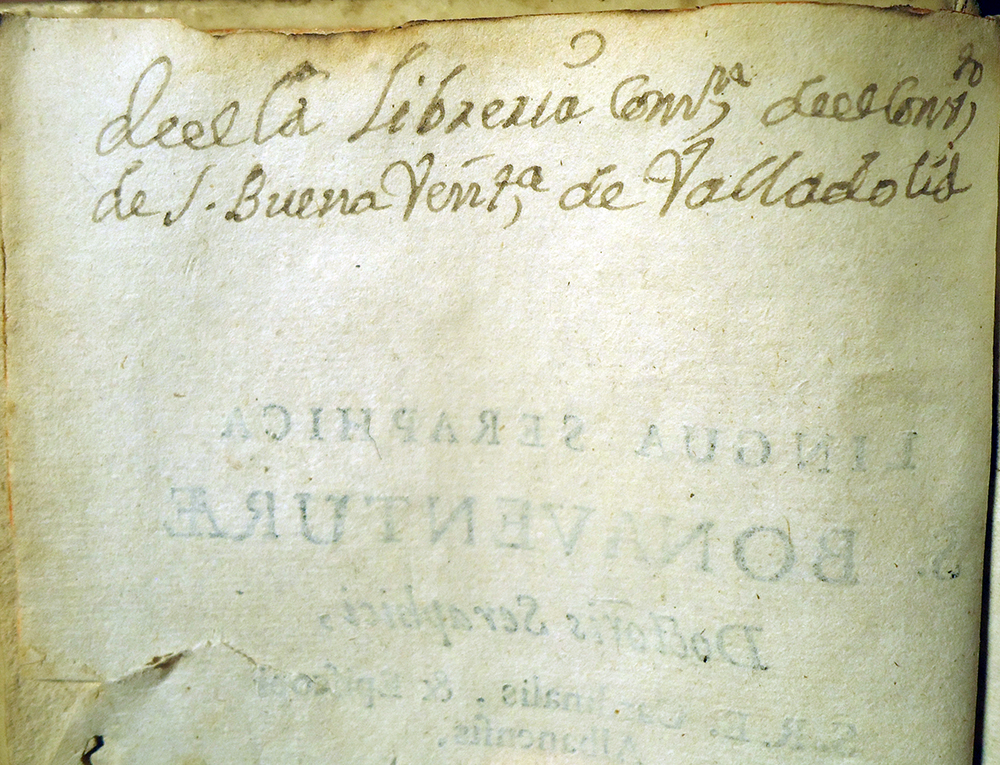 deel la Libreria Com.ᵘⁿ deel Conv.ᵗᵒ
de S. Buena Vent.ᵃ de Valladolid
LINGUA SERAPHICA
S. BONAVENTURÆ
Doctoris Seraphici,
S.R.E. Cardinalis, & Episcopi
Albanensis,